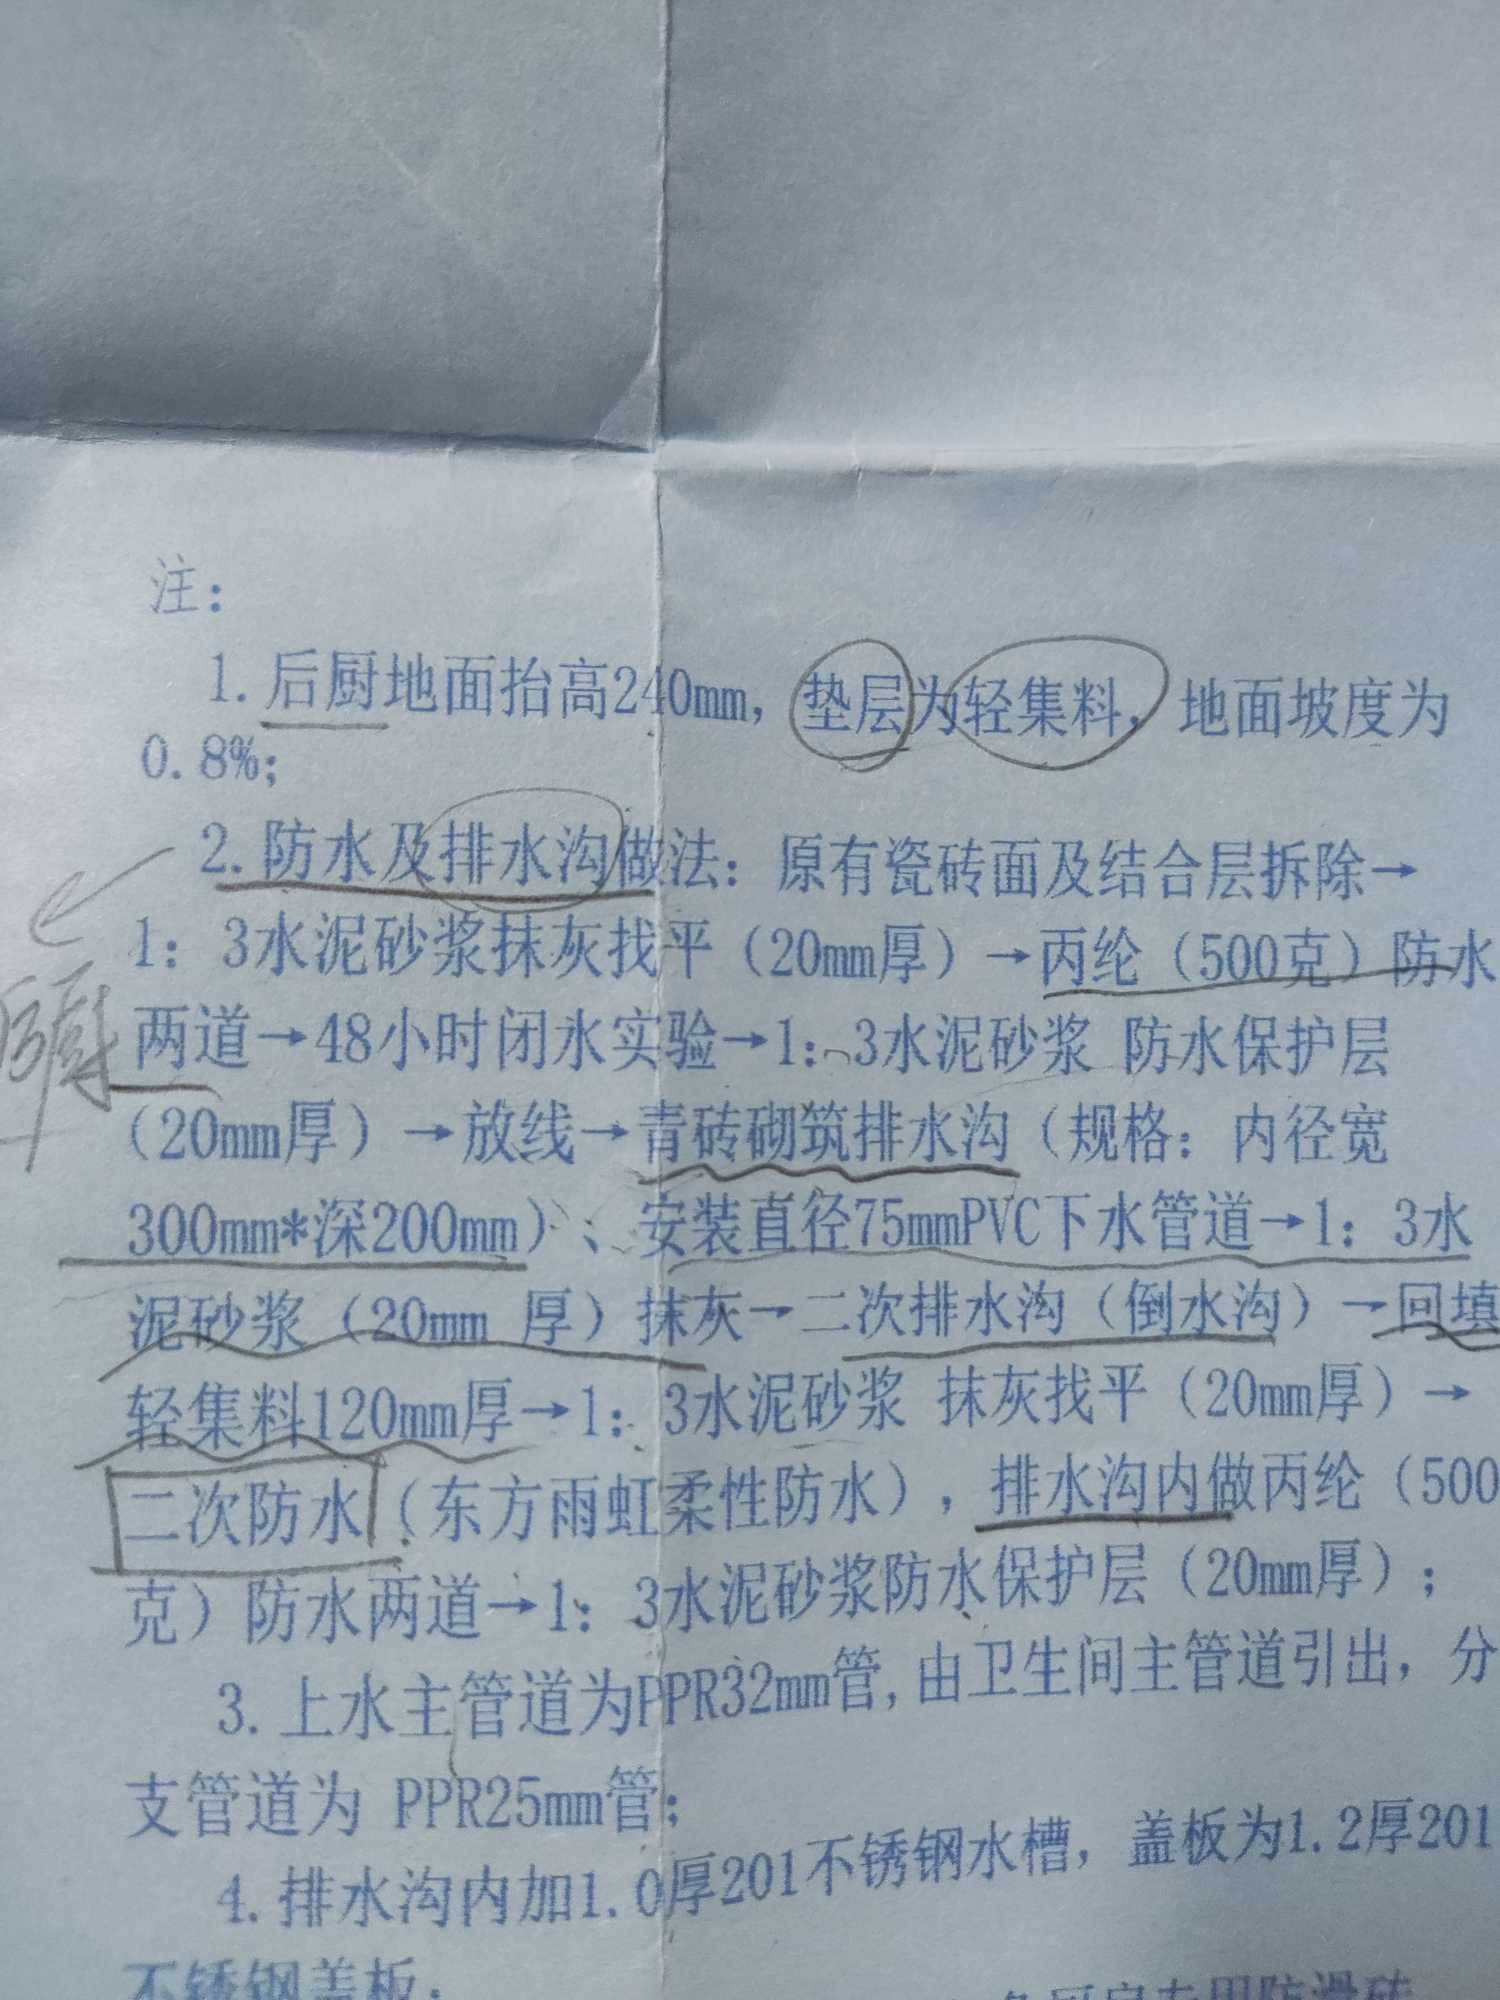 注：
1.后厨地面抬高240mm，垫层为轻集料，地面坡度为
0.8%；
2.防水及排水沟做法：原有瓷砖面及结合层拆除→
1：3水泥砂浆抹灰找平（20mm厚）→丙纶（500克）防水
后厨
两道→48小时闭水实验→1：3水泥砂浆 防水保护层
（20mm厚）→放线→青砖砌筑排水沟（规格：内径宽
300mm*深200mm）、安装直径75mmPVC下水管道→1：3水
泥砂浆（20mm 厚）抹灰→二次排水沟（倒水沟）→回填
轻集料120mm厚→1：3水泥砂浆 抹灰找平（20mm厚）→
二次防水（东方雨虹柔性防水），排水沟内做丙纶（500
克）防水两道→1：3水泥砂浆防水保护层（20mm厚）；
3.上水主管道为PPR32mm管,由卫生间主管道引出，分
支管道为 PPR25mm管；
4.排水沟内加1.0厚201不锈钢水槽，盖板为1.2厚201
不锈钢盖板；
专用防滑砖